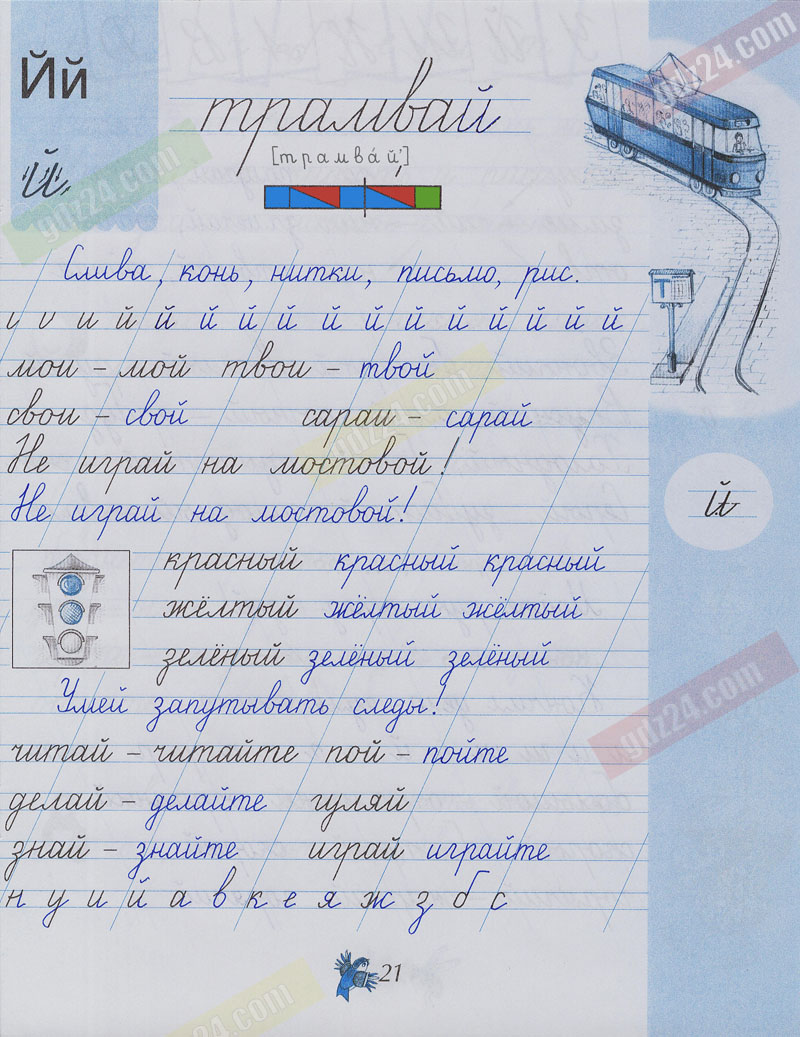 Йй
трамвай
й
[трамва́й’]
Слива, конь, нитки, письмо, рис.
и и и й й й й й й й й й й й й й
мои – мой твои – твой
свои – свой сараи – сарай
Не играй на мостовой!
Не играй на мостовой!
й
красный красный красный
жёлтый жёлтый жёлтый
зелёный зелёный зелёный
Умей запутывать следы!
читай – читайте пой – пойте
делай – делайте гуляй
знай – знайте играй играйте
н у и й а в к е я ж з б с
21
Т
gdz24.com
gdz24.com
gdz24.com
gdz24.com
gdz24.com